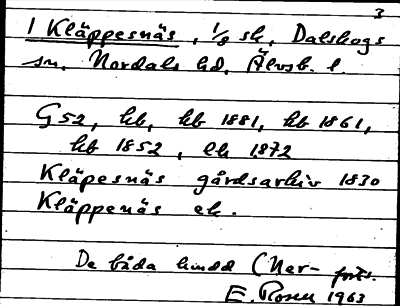 3
1 Kläppesnäs, 1/8 sk, Dalskogs
sn, Nordals hd, Älvsb. l.
G52, kb, kb 1881, kb 1861,
kb 1852, ek 1872
Kläpesnäs gårdsarkiv 1830
Kläppenäs ek.
De båda hindd (Ner- forts.
E. Rosen 1963